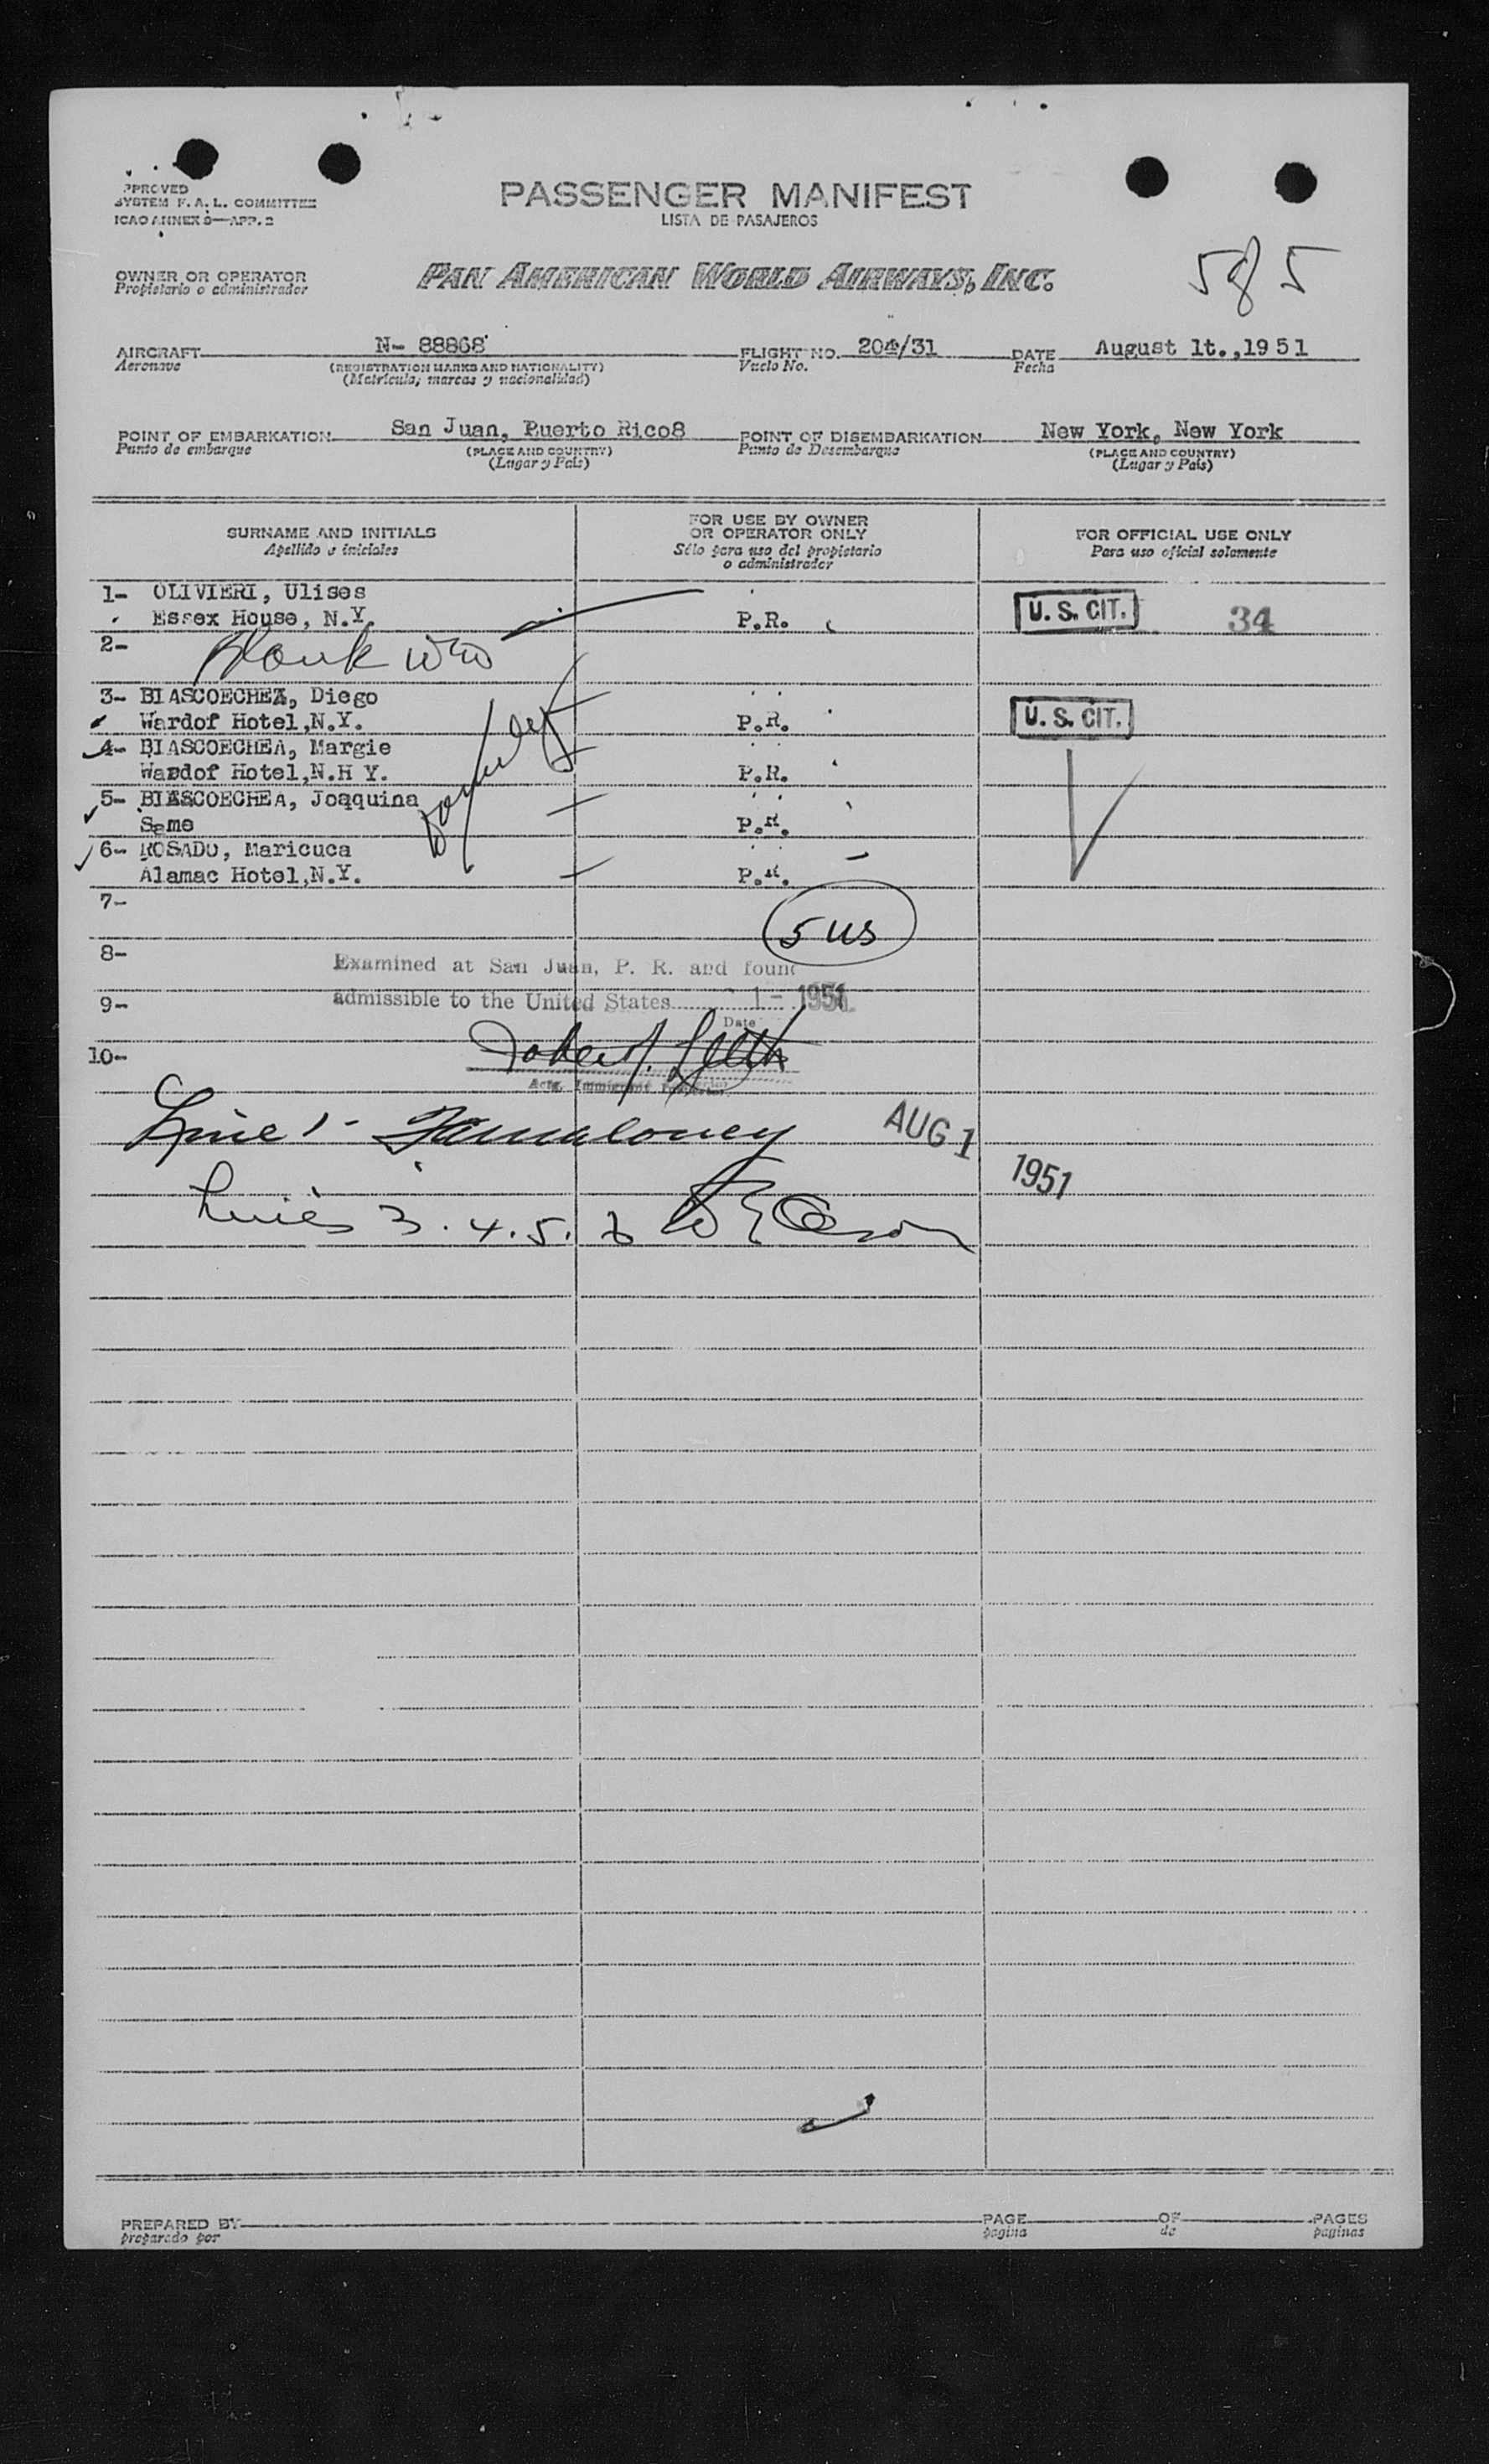 PPROVED
SYSTEM F. A. L. COMMITTEE
ICAO ANNEX 9—APP. 2
PASSENGER MANIFEST
LISTA DE PASAJEROS
5 of 5
OWNER OR OPERATOR
Propietario o administrador
PAN AMERICAN WORLD AIRWAYS, INC.
AIRCRAFT N- 88868 FLIGHT NO. 204/31 DATE August 1t.,1951
Aeronave (REGISTRATION MARKS AND NATIONALITY) Vuelo No. Fecha
(Matrícula; marcas y nacionalidad)
POINT OF EMBARKATION San Juan, Puerto Rico8 POINT OF DISEMBARKATION New York, New York
Punto de embarque (PLACE AND COUNTRY) Punto de Desembarque (PLACE AND COUNTRY)
(Lugar y País) (Lugar y País)
SURNAME AND INITIALS FOR USE BY OWNER OR OPERATOR ONLY FOR OFFICIAL USE ONLY
Apellido e iniciales Sólo para uso del propietario o administrador Para uso oficial solamente
1- OLIVIERI, Ulises
Essex House, N.Y. P.R. U. S. CIT. 34
2- Blank
3- BIASCOECHEA, Diego
Wardof Hotel,N.Y. P.R. U. S. CIT.
4- BIASCOECHEA, Margie
Wardof Hotel,N.H Y. P.R.
5- BIASCOECHEA, Joaquina
Same P.R.
6- ROSADO, Maricuca
Alamac Hotel,N.Y. P.R.
7-
5 US
8-
Examined at San Juan, P. R. and found
9- admissible to the United States 1- 1951
Date
10-
Actg. Immigrant Inspector
Line 1- AUG 1 1951
Lines 3. 4. 5. 6
PREPARED BY PAGE OF PAGES
preparado por pagina de paginas